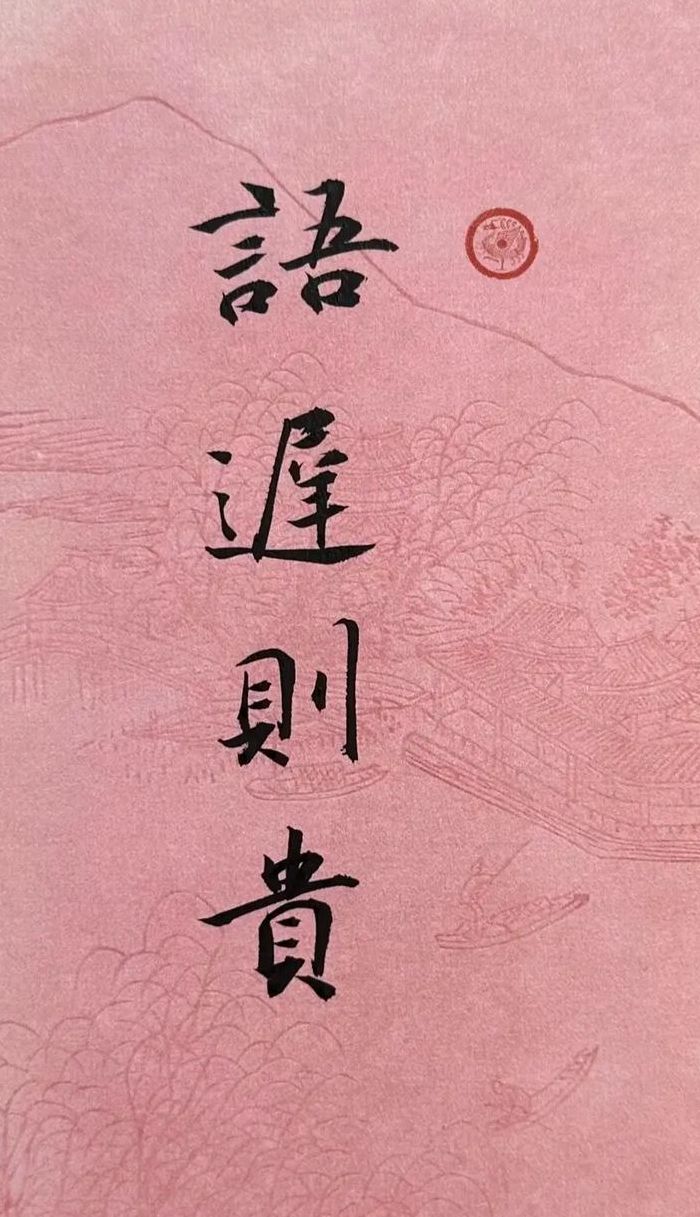 語遲則貴